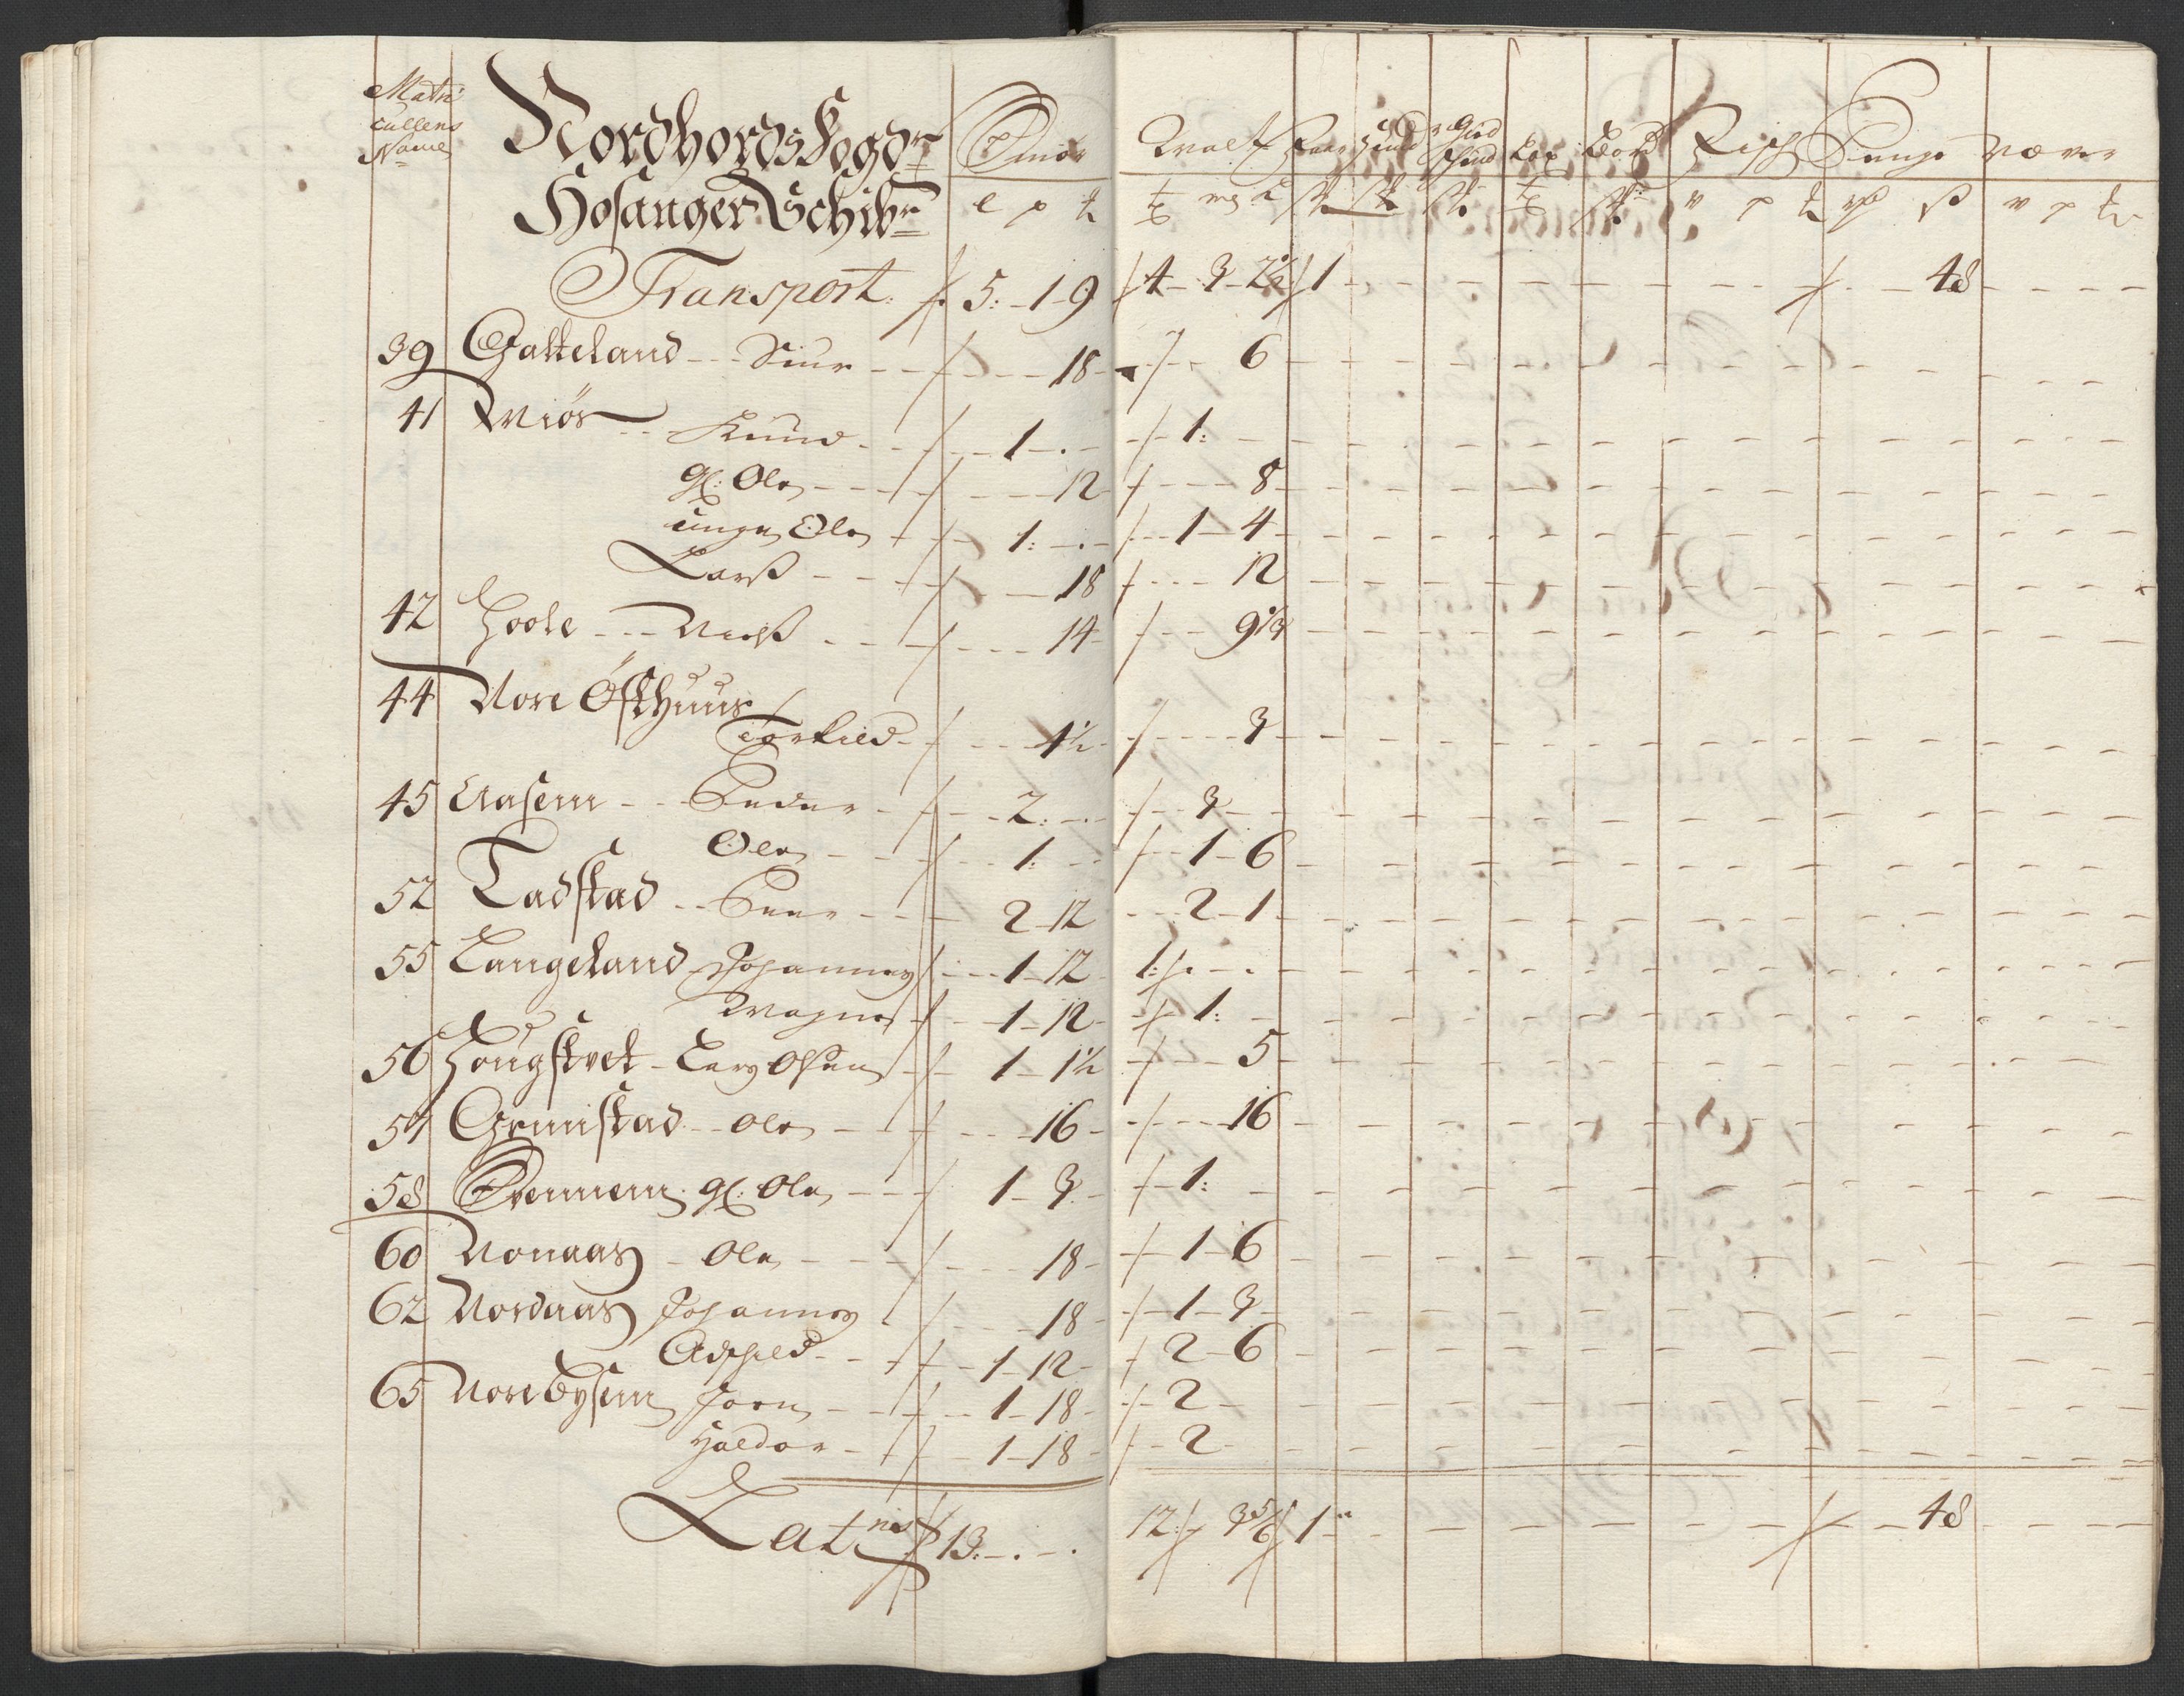 Matri
cullens
Name
Nordhords Fogdr
Hosanger Schibr
Smör Malt Huder Lax Bord Fisch Penge
l p t
Transport 5: 1 9 4 3 2½ 1 48
39 Gatteland Siur 18 6
41 Miøs Knud 1 1:
gl: Ole 12 8
unge Ole 1: 1 4
Larß 18 12
42 Hoole Nielß 14 9⅓
44 Nore Østhuus
Torkild 4½ 3
45 Aasem Peder 2: 3
Ole 1: 1 6
52 Tadstad Peer 2 12 2 1
55 Langeland Johannes 1 12 1:
Magne 1 12 1:
56 Hougstvet Lars Olsen 1 1½ 5
57 Grimstad Ole 16 16
58 Dvennem gl: Ole 1 3 1:
60 Monaas Ole 18 1 6
62 Nordaas Johannes 18 1 3
Adschild 1 12 2 6
65 Nore Bysem Joen 1 18 2
Haldor 1 18 2
Latris 13: 12: 3⅚ 1 48